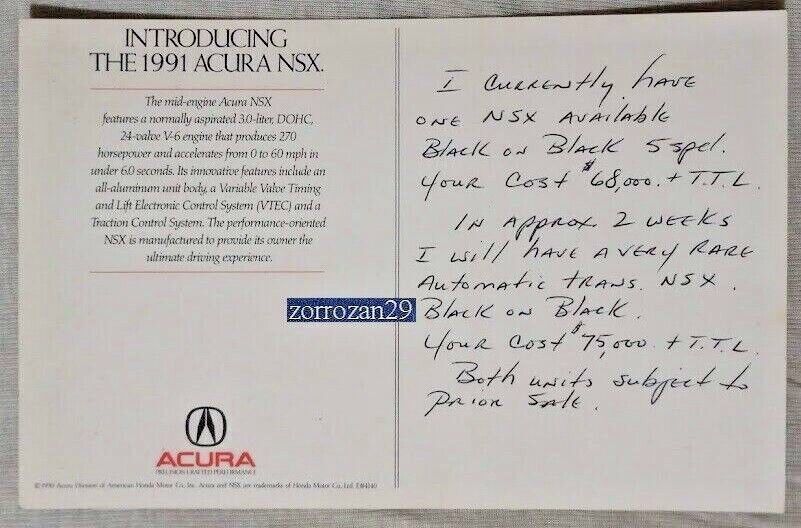 INTRODUCING
THE 1991 ACURA NSX.
The mid-engine Acura NSX
features a normally aspirated 3.0-liter, DOHC,
24-valve V-6 engine that produces 270
horsepower and accelerates from 0 to 60 mph in
under 6.0 seconds. Its innovative features include an
all-aluminum unit body, a Variable Valve Timing
and Lift Electronic Control System (VTEC) and a
Traction Control System. The performance-oriented
NSX is manufactured to provide its owner the
ultimate driving experience.
ACURA
PRECISION CRAFTED PERFORMANCE
©1990 Acura Division of American Honda Motor Co., Inc. Acura and NSX are trademarks of Honda Motor Co., Ltd.
I currently have
one NSX available
Black on Black 5 spd.
Your cost $68,000. + T.T.L.
In approx. 2 weeks
I will have a very rare
Automatic trans. NSX.
Black on Black.
Your cost $75,000. + T.T.L.
Both units subject to
prior sale.
zorrozan29